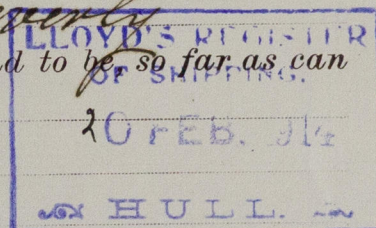 LLOYD'S REGISTER
d to be, so far as can
OF SHIPPING.
20 FEB. 914
HULL.